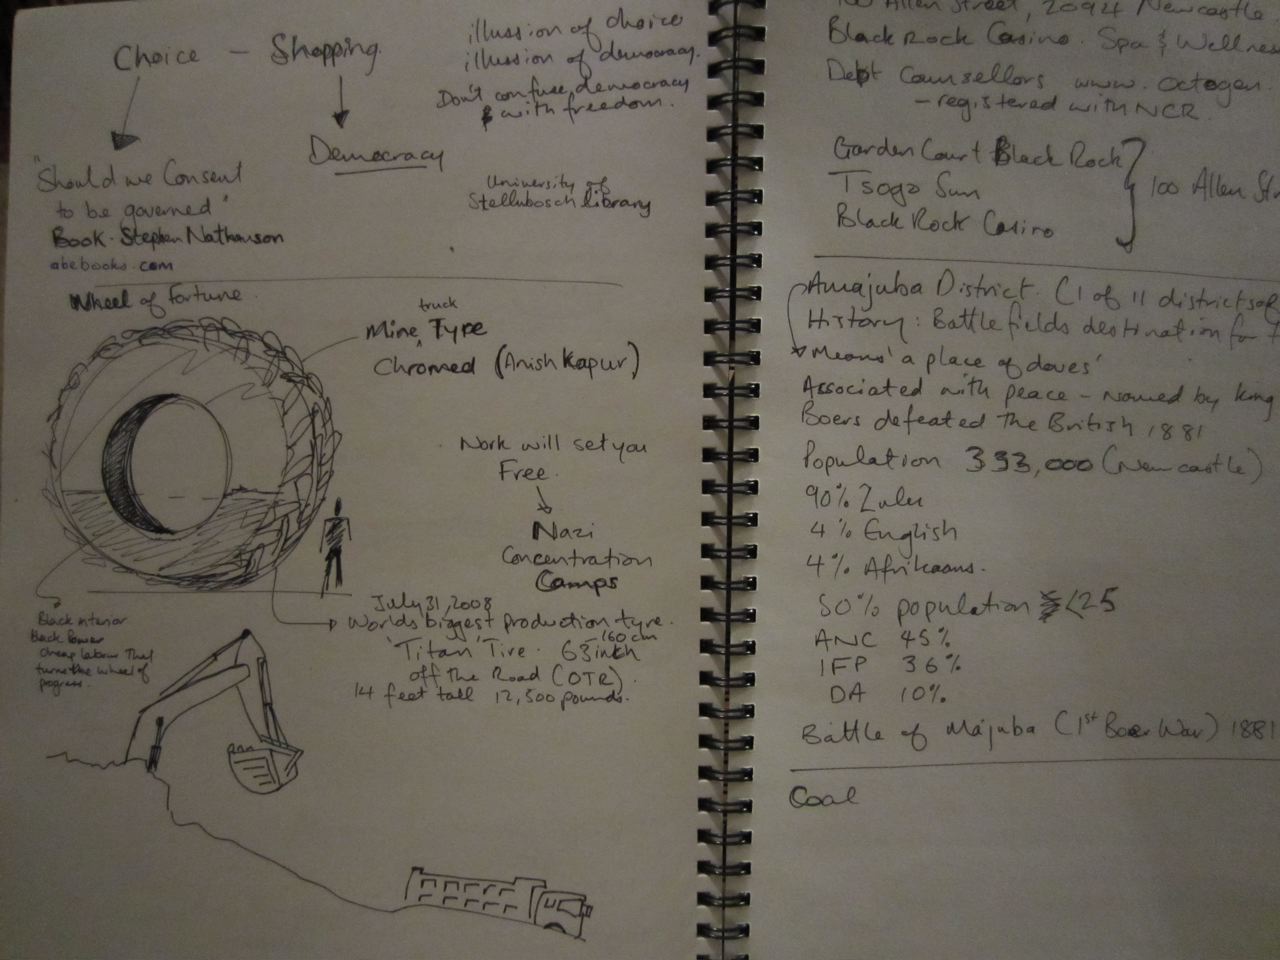 Choice - Shopping
illussion of choice
illussion of democracy.
Don't confuse democracy
with freedom.
Democracy
"Should we Consent
to be governed"
Book. Stephen Nathanson
abebooks.com
University of
Stellubosch library
Wheel of Fortune
truck
Mine Tyre
Chromed (Anish Kapur)
Work will set you
Free.
Nazi
Concentration
Camps
Black interior
Black Power
cheap labour They
turn the wheel of
progress.
July 31, 2008
Worlds biggest production tyre.
'Titan' Tire. 63 inch
-160cm
off the Road (OTR).
14 feet tall 12,500 pounds.
100 Allen Street, 2094 Newcastle
Black Rock Casino. Spa & Wellnes
Debt Counsellors www.octogen.
- registered with NCR.
Garden Court Black Rock
Tsogo Sun
Black Rock Casino
100 Allen Str
Amajuba District. (1 of 11 districts of
History: Battlefields destination for
Means 'a place of doves'
Associated with peace - named by King
Boers defeated the British 1881
Population 333,000 (Newcastle)
90% Zulu
4% English
4% Afrikaans.
50% population <25
ANC 45%
IFP 36%
DA 10%
Battle of Majuba (1st Boer War) 1881
Coal